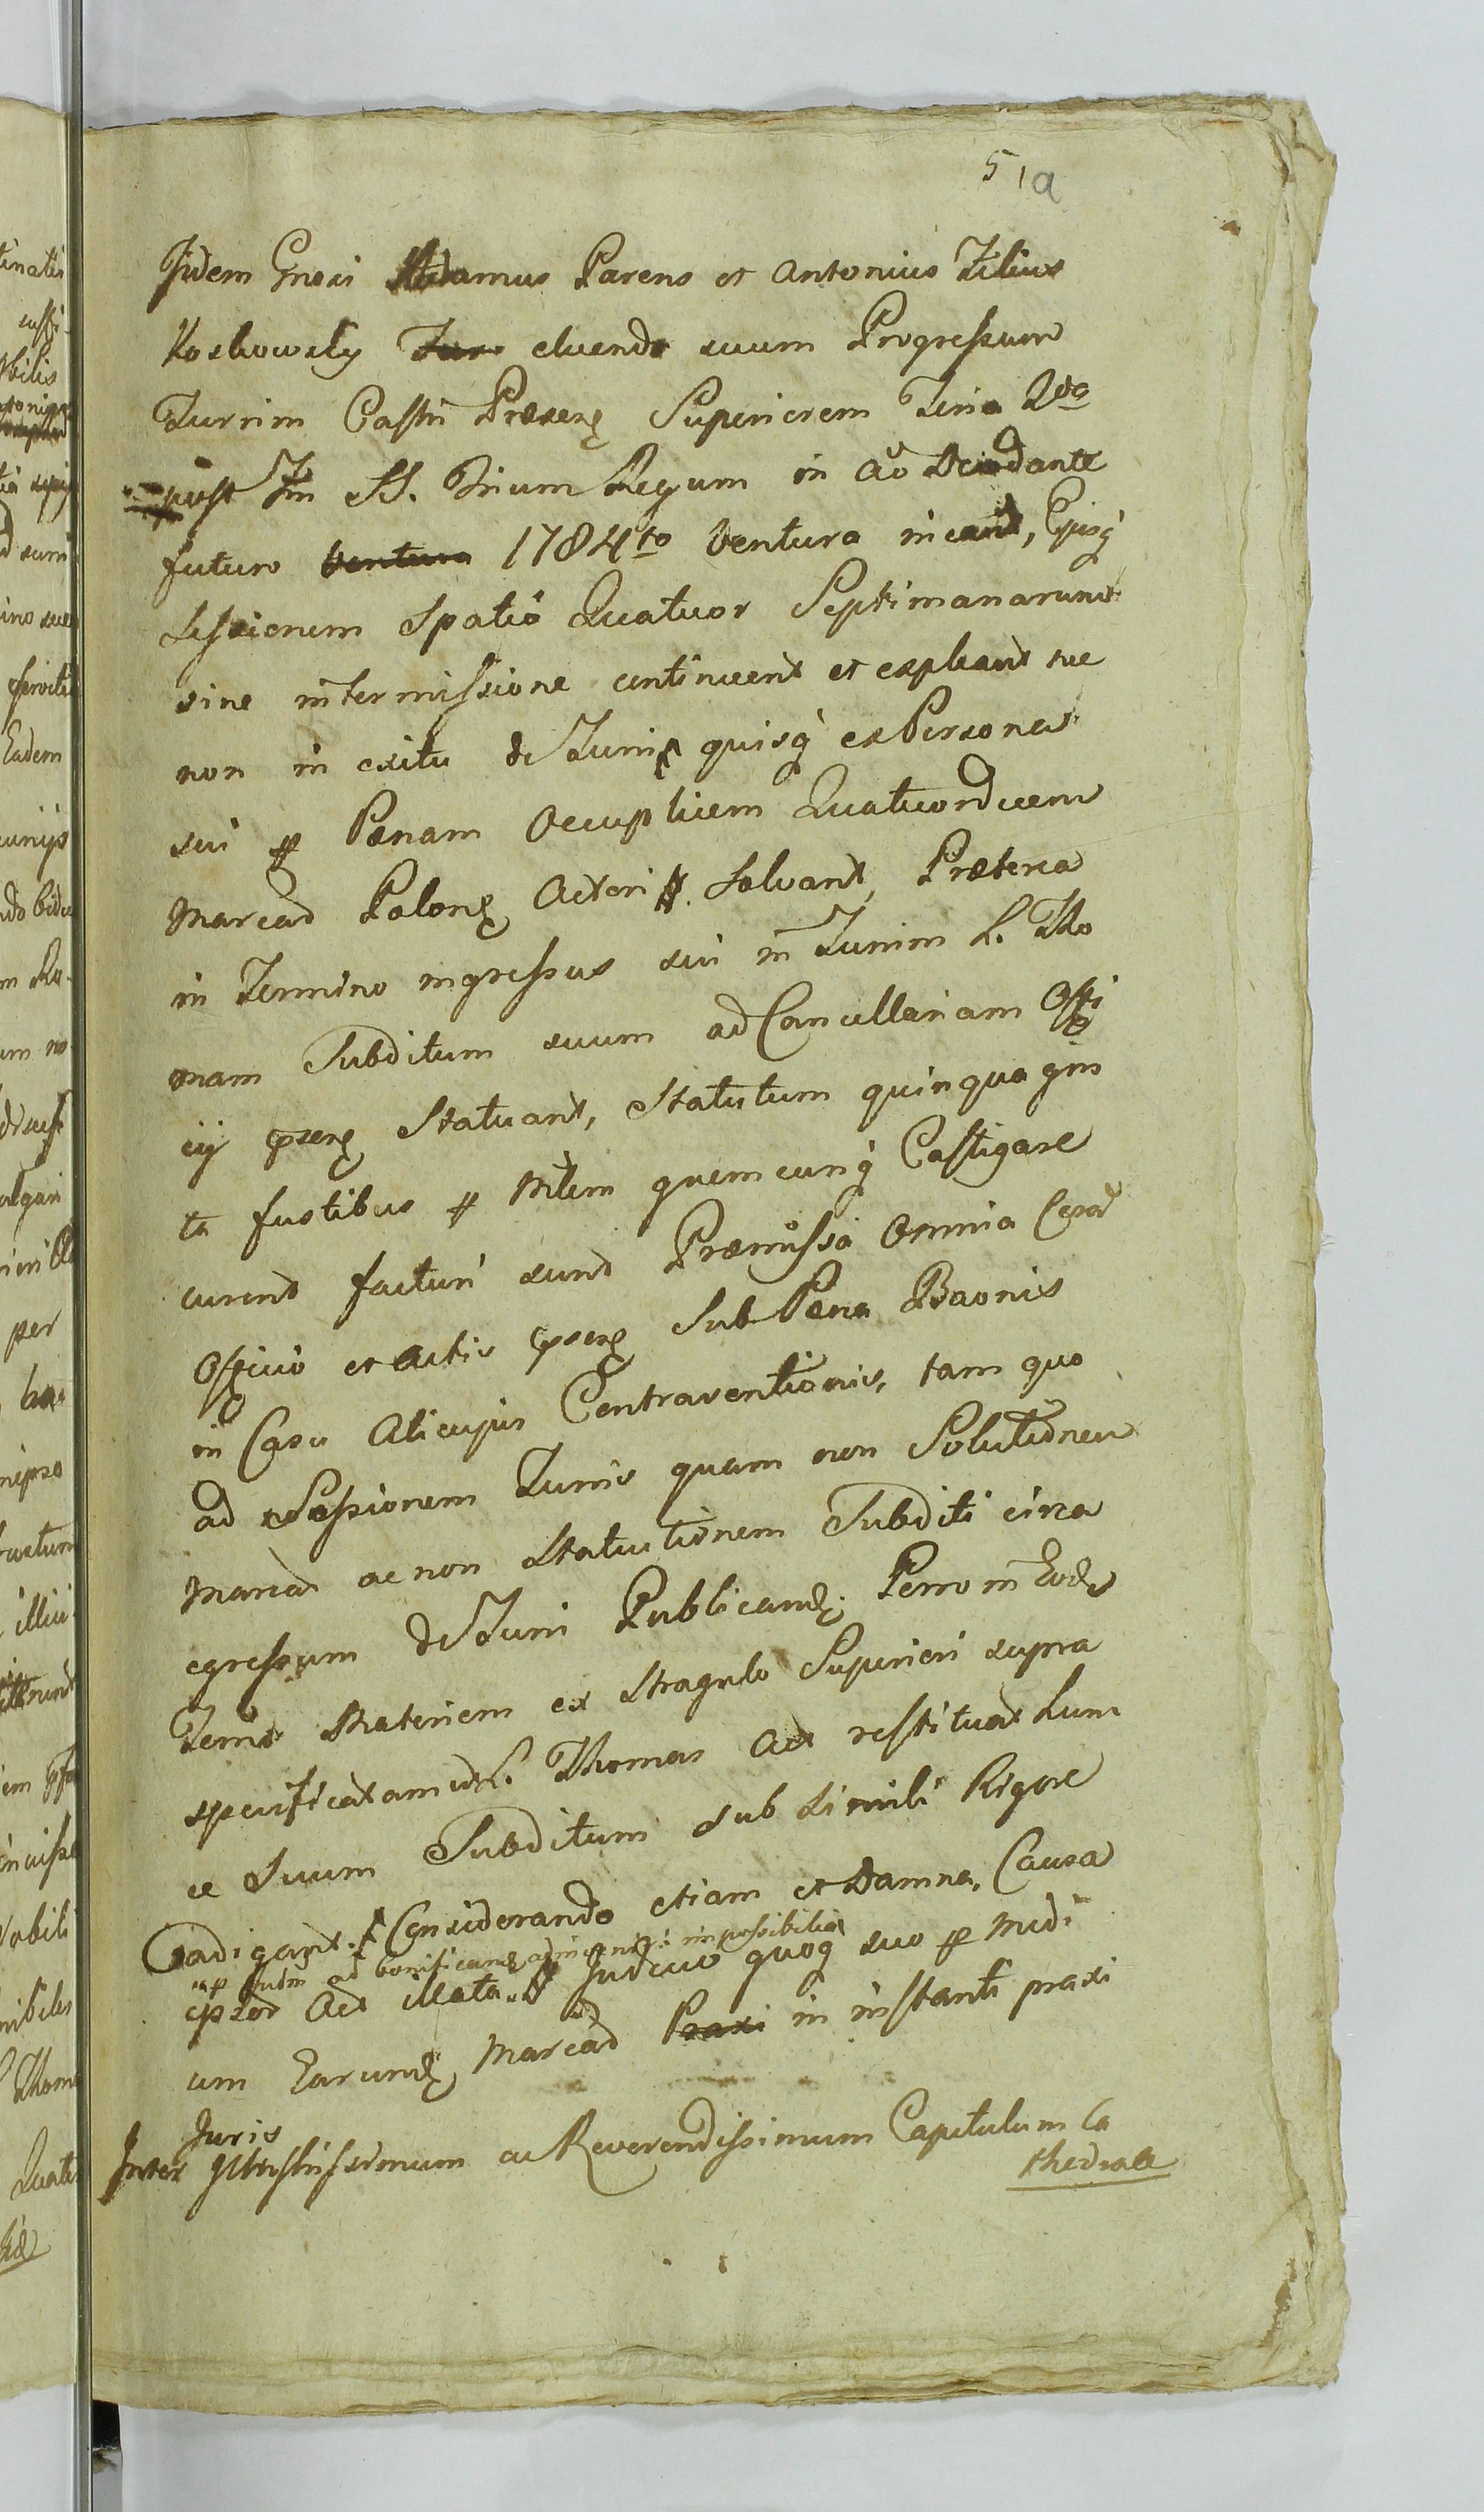 51a
Jidem Gnosi Adamus Parens et Antonius Filius
Koskowsky eluendo suum Progressum
Turrim Castri Præsenς Superiorem Feria 2da
post Fm SS. Trium Regum in Ao Deodante
futuro Ventura 1784to Ventura ineant, Ejusq
Sessionem Spatio Quatuor Septimanarum
sine intermissione continuent et expleant nec
non in exitu de Turri quisq ex Persona
sui p Pænam Occuplicem Quatuordecem
Marcas Polonς Actori Solvant, Præterea
in Termino ingressus sui in Turrim L. Tho
mam Subditum suum ad Cancellariam Offi
cij psenς Statuant, Statutum quinquagin
ta fustibus p Mtlem quemcunq Castigare
curent facturi sunt Præmissa Omnia Coram
Officio et Actis psenς Sub Pæna Baonis
in Casu Alicujus Contraventionis, tam quo
ad Sessionem Turris quam non Solutionem
Marcar ac non Statutionem Subditi circa
egressum de Turri Publicandς. Porro in Eodς
Termo Materiem ex Stragulo Superiori supra
specificatam L. Thomas Act restituat Eum
ce Suum Subditum sub simili Rigore
adigant. Considerando etiam et Damna, Causa
ad bonificandς impossibilia
ipsor Act illata Judicio quoq suo p Medi
um Earundς Marcas Praxi in instanti praxi
Juris
Inter Illustrissimum ac Reverendissimum Capitulum Ca
thedrale